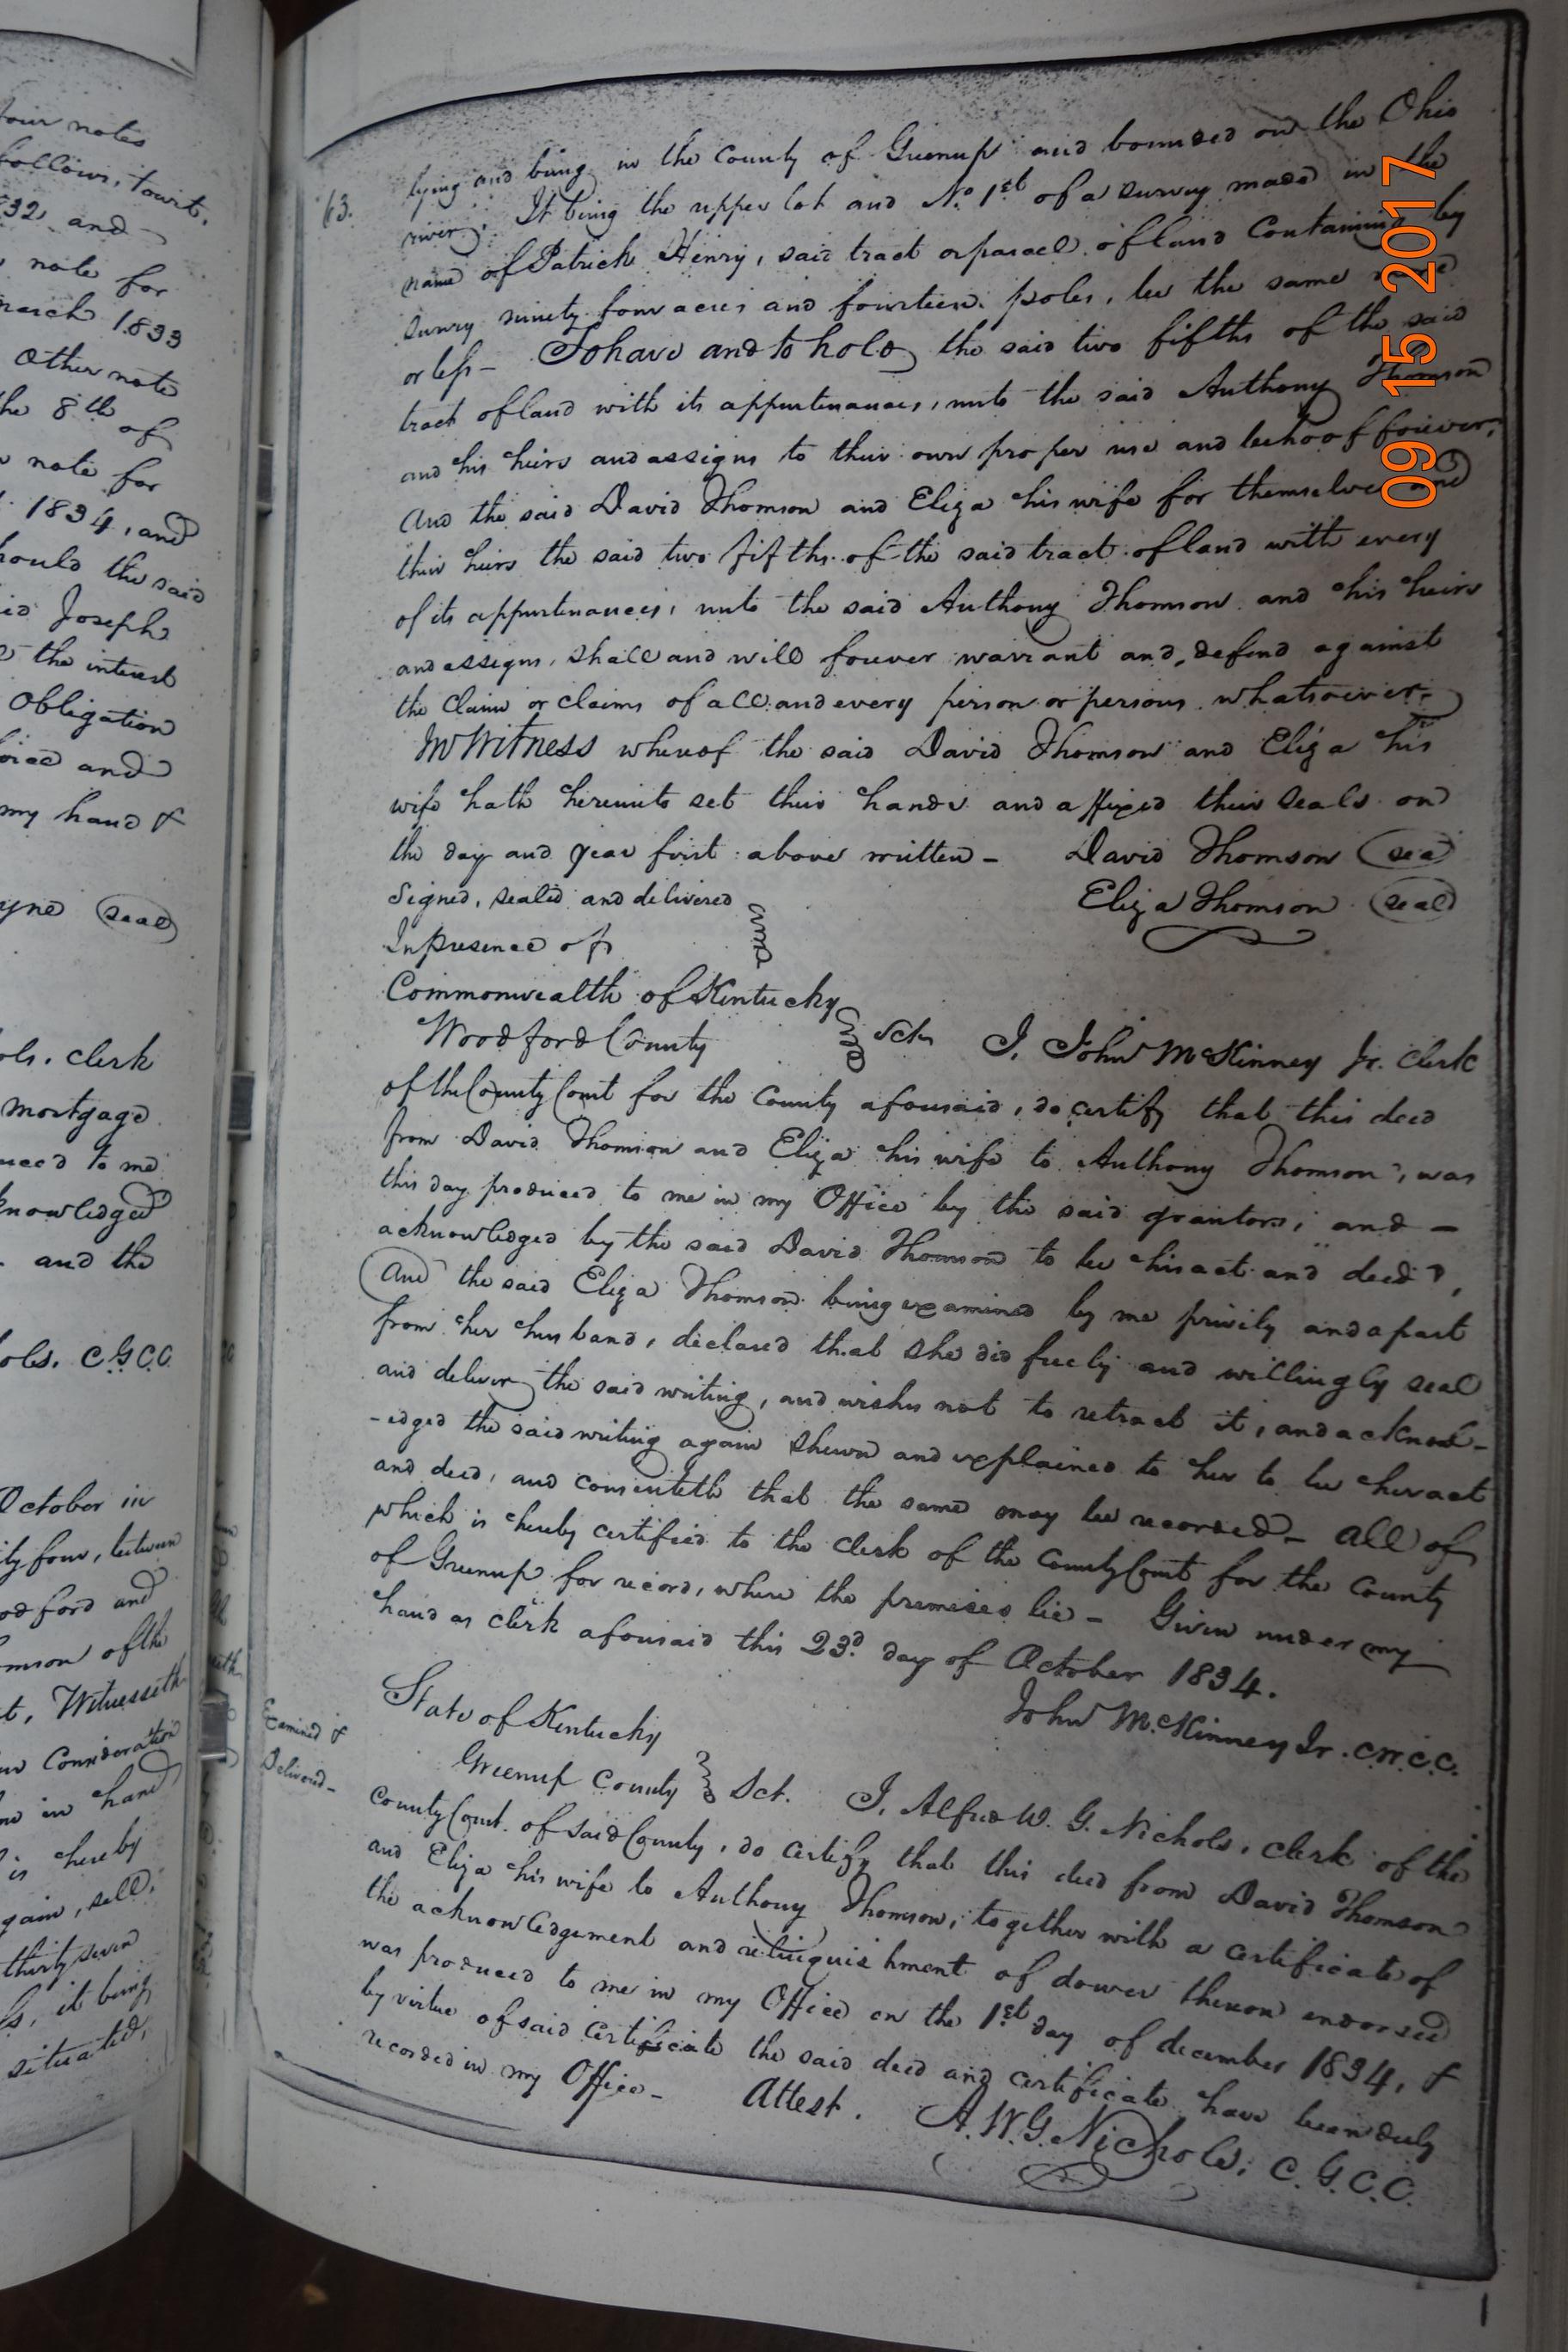 four notes
follows, towit,
32 and
note for
march 1833
Other note
the 8th of
note for
1834, and
should the said
Joseph
the interest
Obligation
and
my hand &
yne (seal)
ols. clerk
mortgage
to me
knowledged
and the
ols. C.G.C.C.
October in
ty four, between
od ford and
mson of the
t, Witnesseth
Consideration
in hand
is hereby
gain, sell,
thirty seven
it being
situated,
63.
lying and being in the County of Greenup and bounded on the Ohio
river; It being the upper lot and No. 1st of a survey made in the
name of Patrick Henry, said tract or parcel of land Containing by
survey ninety four acres and fourteen poles, be the same more
or less - To have and to hold the said two fifths of the said
tract of land with its appurtenances, unto the said Anthony Thomson
and his heirs and assigns to their own proper use and behoof forever,
And the said David Thomson and Eliza his wife for themselves and
their heirs the said two fifths of the said tract of land with every
of its appurtenances, unto the said Anthony Thomson and his heirs
and assigns, shall and will forever warrant and, defend against
the claim or claims of all and every person or persons whatsoever;
In Witness whereof the said David Thomson and Eliza his
wife hath hereunto set their hands and affixed their seals on
the day and year first above written - David Thomson (seal)
Signed, sealed and delivered Eliza Thomson (seal)
In presence of
Commonwealth of Kentucky
Woodford County Sct. I, John McKinney Jr. clerk
of the County Court for the County aforesaid, do certify that this deed
from David Thomson and Eliza his wife to Anthony Thomson, was
this day produced to me in my Office by the said grantors, and -
acknowledged by the said David Thomson to be his act and deed,
And the said Eliza Thomson being examined by me privily and apart
from her husband, declared that she did freely and willingly seal
and deliver the said writing, and wishes not to retract it, and acknowl-
-edged the said writing again shewn and explained to her to be her act
and deed, and consenteth that the same may be recorded - All of
which is hereby certified to the clerk of the County Court for the County
of Greenup for record, where the premises lie - Given under my
hand as clerk aforesaid this 23d. day of October 1834.
John McKinney Jr. C.W.C.C.
Examined &
Delivered -
State of Kentucky
Greenup County Sct. I, Alfred W. G. Nichols, clerk of the
County Court of said County, do certify that this deed from David Thomson
and Eliza his wife to Anthony Thomson, together with a certificate of
the acknowledgement and relinquishment of dower thereon endorsed
was produced to me in my Office on the 1st day of december 1834, &
by virtue of said certificate the said deed and certificate have been duly
recorded in my Office - Attest. A. W. G. Nichols, C.G.C.C.
09 15 2017